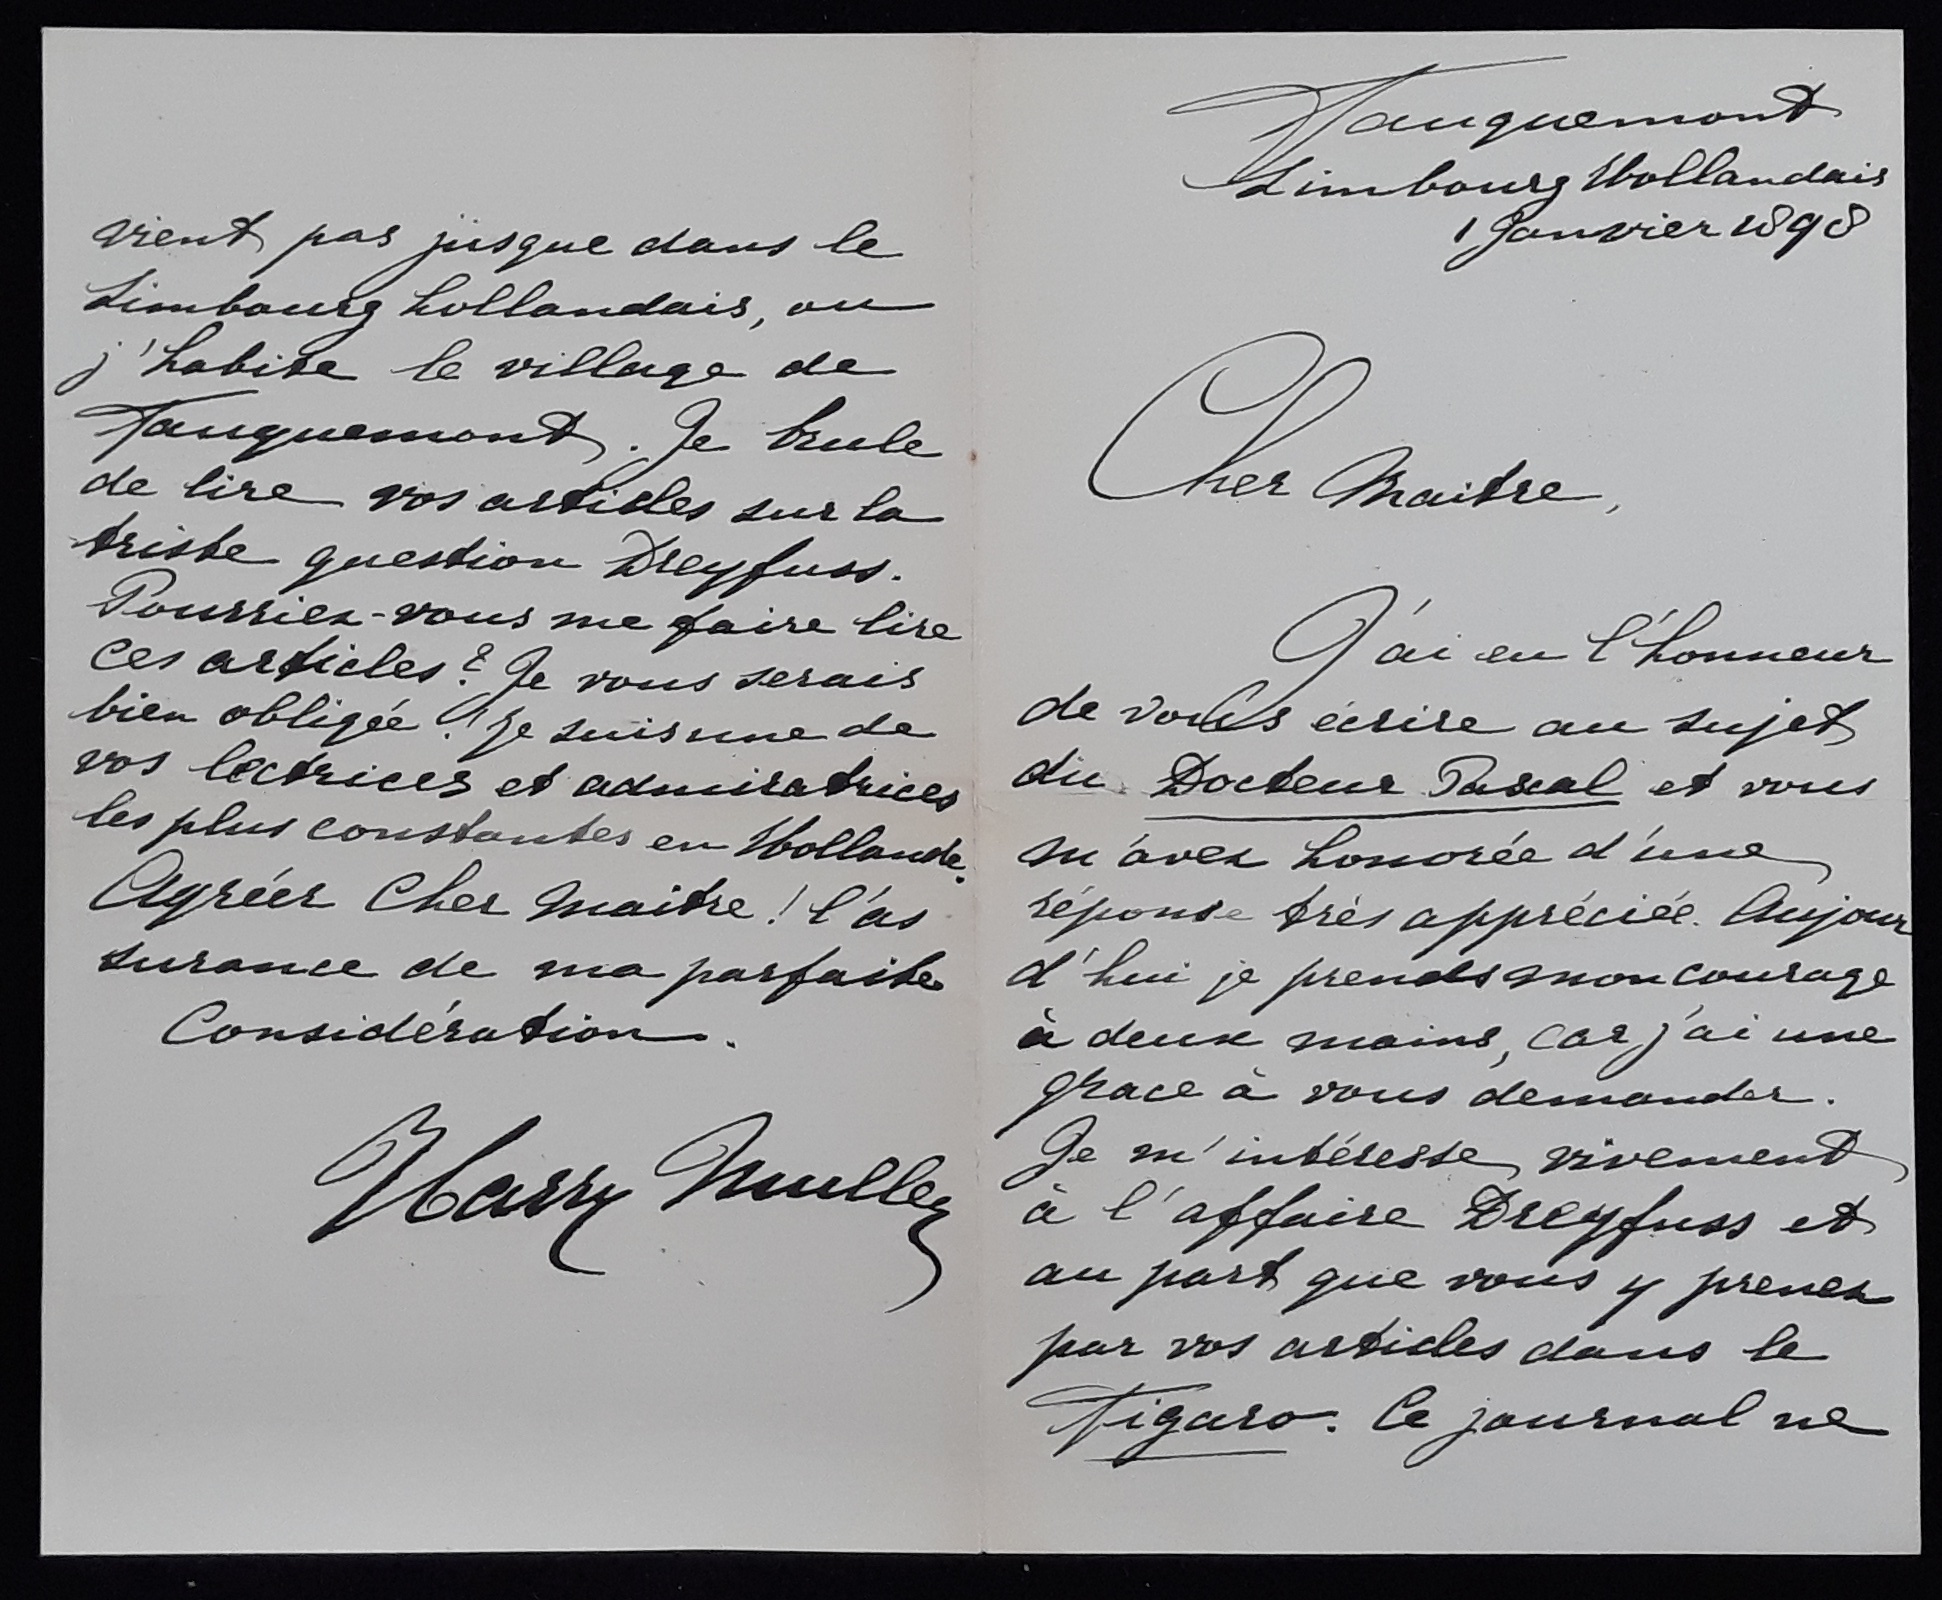 Fauquemont
Limbourg Hollandais
1 Janvier 1898
Cher Maitre,
J'ai eu l'honneur
de vous écrire au sujet
du Docteur Pascal et vous
m'avez honorée d'une
réponse très appréciée. Aujour
d'hui je prends mon courage
à deux mains, car j'ai une
grace à vous demander.
Je m'intéresse vivement
à l'affaire Dreyfuss et
au part que vous y prenez
par vos articles dans le
Figaro. Ce journal ne
vient pas jusque dans le
Limbourg hollandais, ou
j'habite le village de
Fauquemont. Je brule
de lire vos articles sur la
triste question Dreyfuss.
Pourriez-vous me faire lire
ces articles? Je vous serais
bien obligée! Je suis une de
vos lectrices et admiratrices
les plus constantes en Hollande.
Agréer Cher Maitre! l'as
surance de ma parfaite
Considération.
Harry Muller